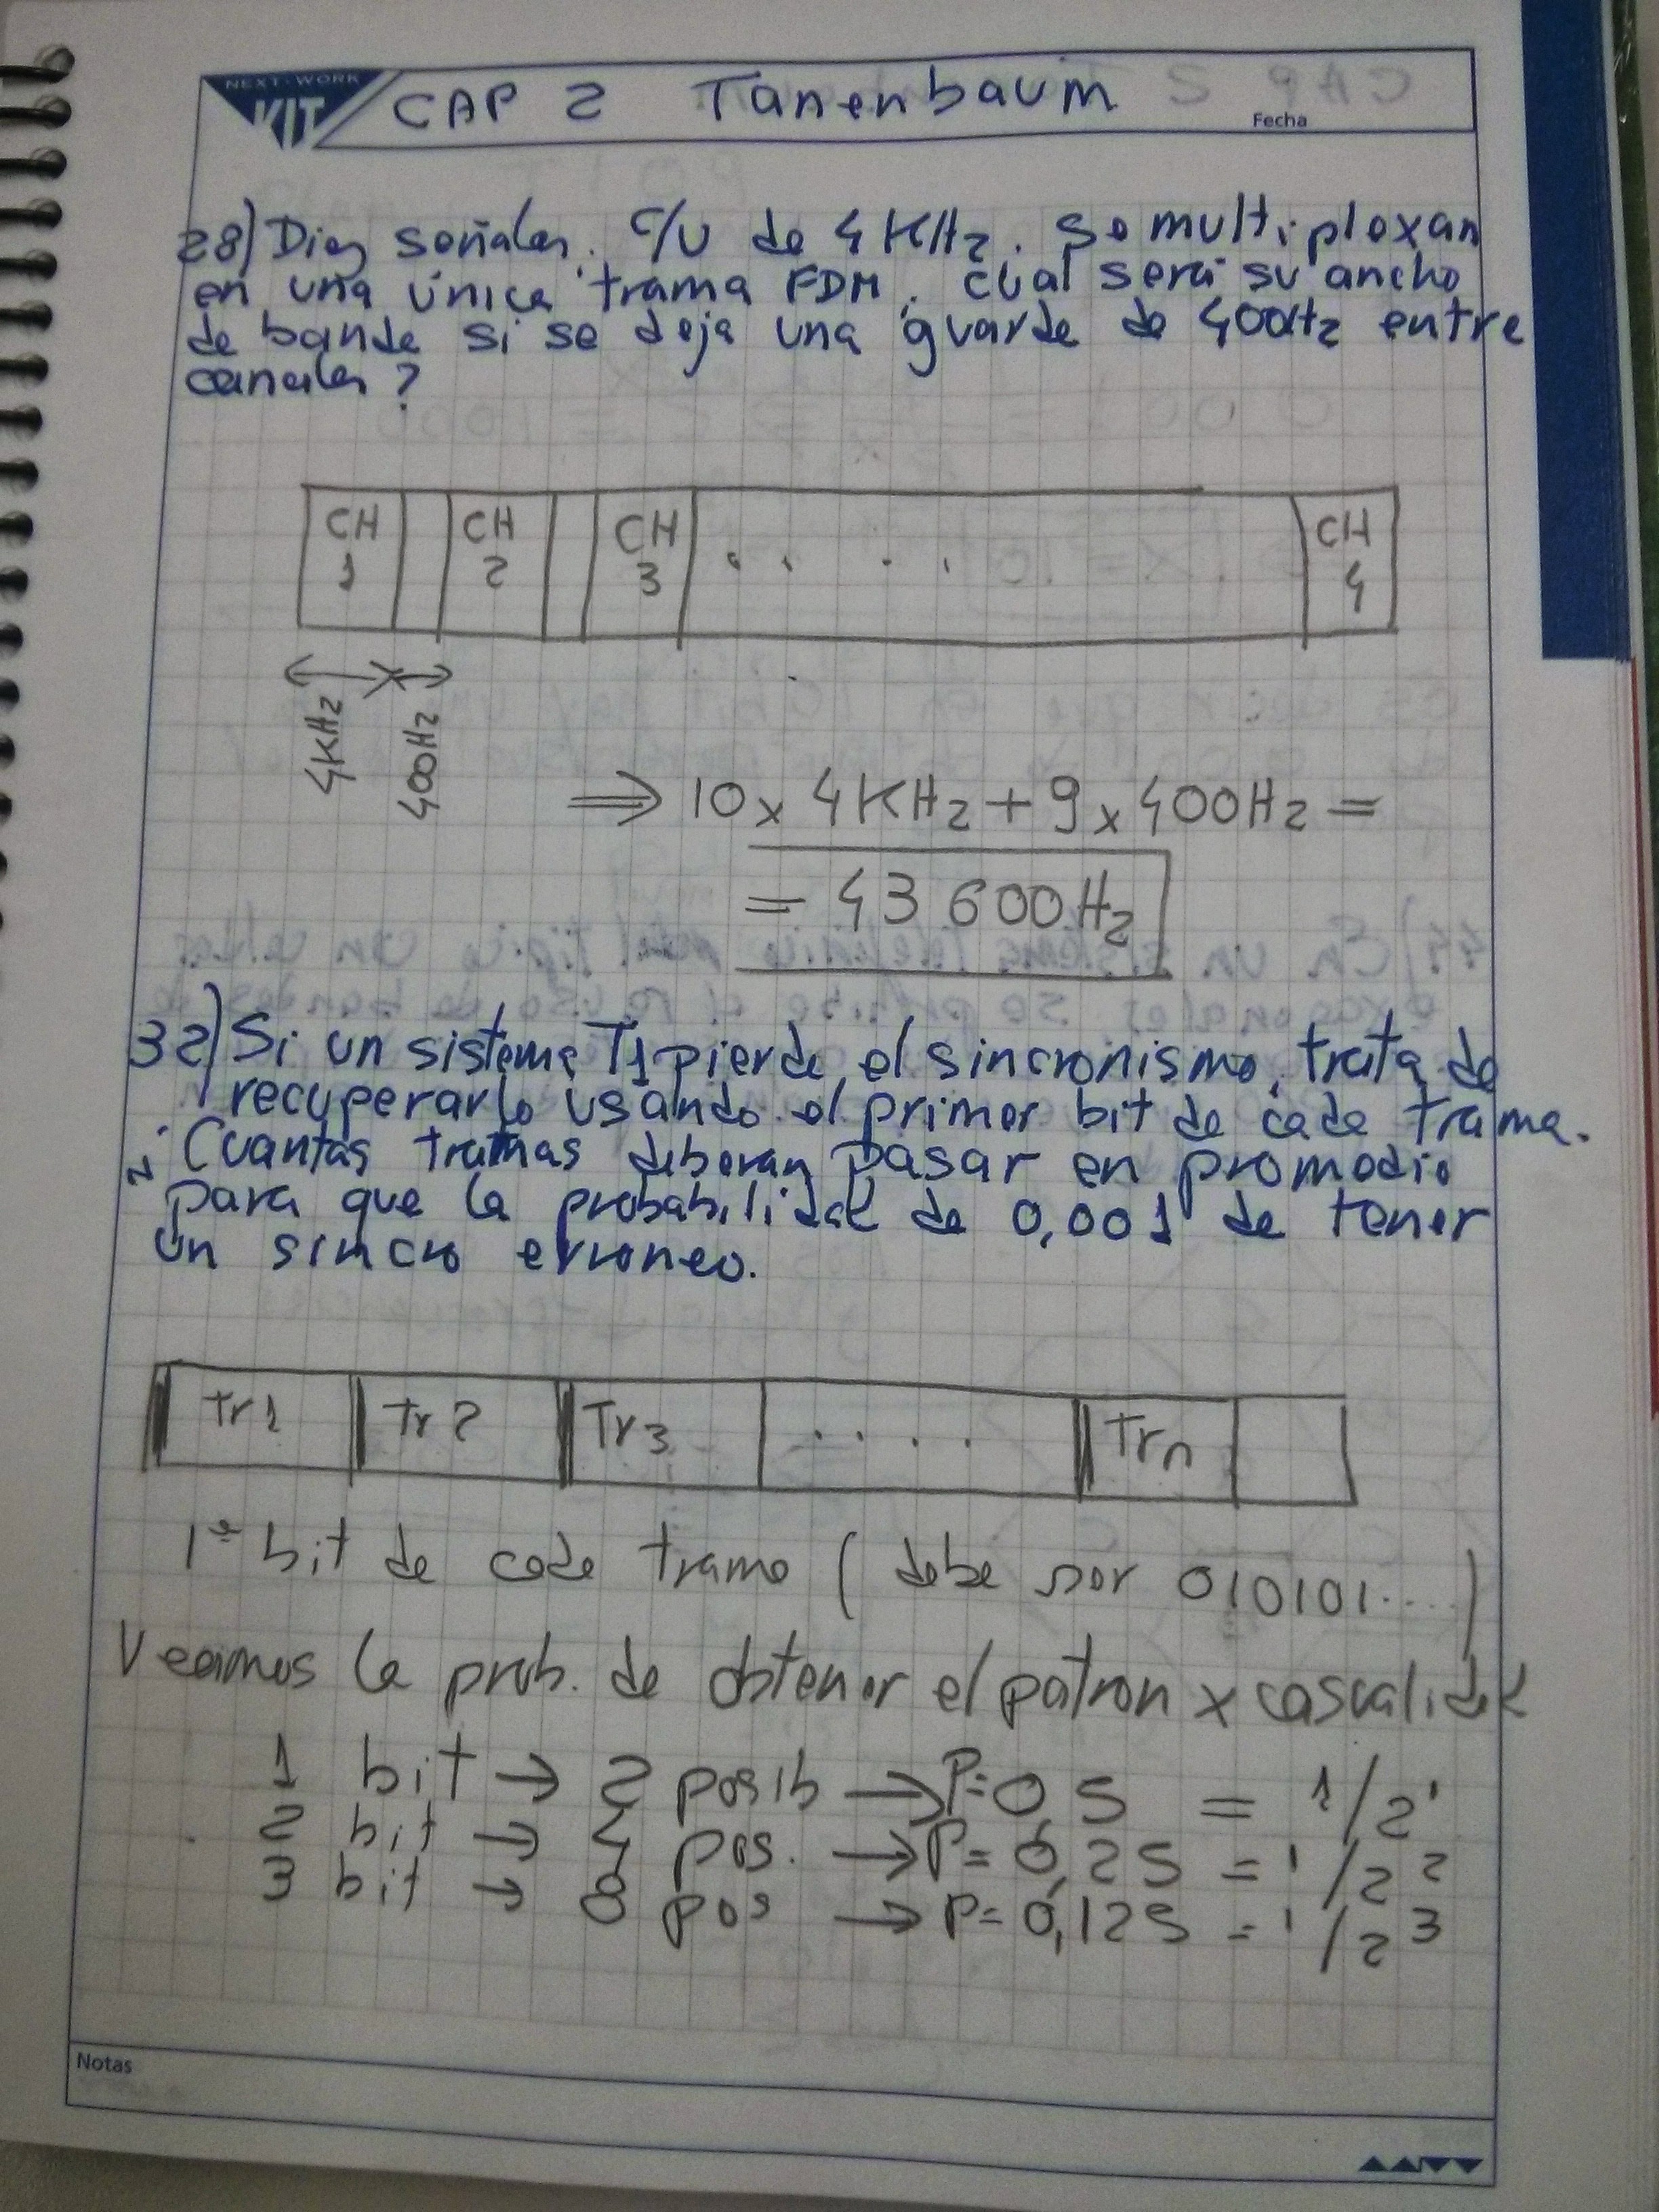 NEXT-WORK
KIT
CAP 2 Tanenbaum
Fecha
28) Diez señales, c/u de 4KHz, se multiplexan
en una única trama FDM, cual será su ancho
de banda si se deja una guarda de 400Hz entre
canales?
CH 1 CH 2 CH 3 . . . . CH 4
4KHz 400Hz
⇒ 10 x 4KHz + 9 x 400Hz =
= 43 600Hz
32) Si un sistema T1 pierde el sincronismo, trata de
recuperarlo usando el primer bit de cada trama.
¿Cuantas tramas deberan pasar en promedio
para que la probabilidad de 0,001 de tener
un sincro erroneo.
Tr1 Tr2 Tr3 . . . . Trn
1er bit de cada trama (debe ser 010101....)
Veamos la prob. de obtener el patron x casualidad
1 bit → 2 posib → P=0,5 = 1/2¹
2 bit → 4 pos. → P=0,25 = 1/2²
3 bit → 8 pos → P=0,125 = 1/2³
Notas